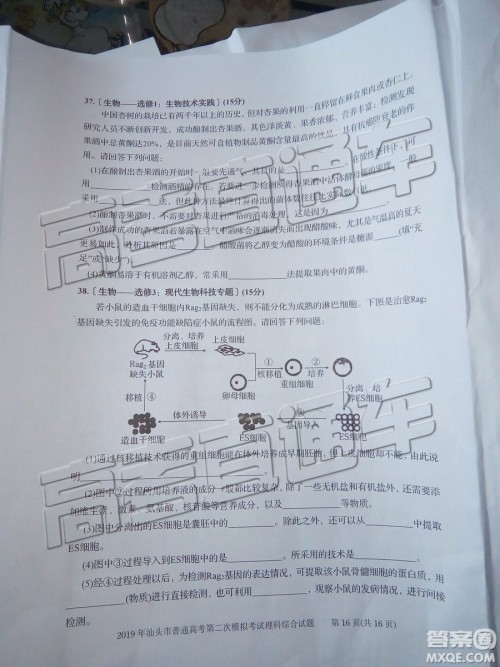 37.［生物——选修1：生物技术实践］(15分)
中国杏树的栽培已有两千年以上的历史，但对杏果的利用一直停留在鲜食果肉或杏仁上。
研究人员不断创新开发，成功酿制出杏果酒，其色泽淡黄、果香浓郁、营养丰富；检测发现
果酒中总黄酮达20%，是目前天然可食植物制品黄酮含量最高的
用。请回答下列问题：
(1)在酿制出杏果酒的开始时
用 检测酒精的存在。若要进
采用
(2)酿制杏果酒时，不需要对杏果进行严格的消毒，这是因为
(3)制作成功的杏果酒若暴露在空气中品味会逐渐出现醋酸味，尤其是气温高的夏天
更易如此，分析其原因是 醋酸菌将乙醇变为醋酸的环境条件是糖源 （填“充
足”或“缺少”）。
(4)黄酮易溶于有机溶剂乙醇，常采用 法提取果肉中的黄酮。
38.［生物——选修3：现代生物科技专题］(15分)
若小鼠的造血干细胞内Rag₂基因缺失，则不能分化为成熟的淋巴细胞。下图是治愈Rag₂
基因缺失引发的免疫功能缺陷症小鼠的流程图。请回答下列问题：
分离、培养
上皮细胞
上皮细胞
Rag₂基因
缺失小鼠
①
核移植
②
培养
卵母细胞
重组细胞
移植 ④
分离、培
养ES细胞
体外诱导
③
基因导入
造血干细胞
ES细胞
ES细胞
(1)通过核移植技术获得的重组细胞能在体外培养成早期胚胎，但一般的上皮细胞却不能，由此说
明
(2)图中②过程所用培养液的成分一般都比较复杂，除了一些无机盐和有机盐外，还需要添
加维生素、激素、氨基酸、核苷酸等营养成分，以及 等物质。
(3)图中分离出的ES细胞是囊胚中的 。除此之外，还可以从 中提取
ES细胞。
(4)图中③过程导入到ES细胞中的是 。所采用的技术是 。
(5)经④过程处理以后，为检测Rag₂基因的表达情况，可提取该小鼠骨髓细胞的蛋白质，用
进行杂交检测。另外，还需要 ，观察小鼠的发病情况，进行间接
检测。
2019年汕头市普通高考第二次模拟考试理科综合试题 第16页(共16页)
高考直通车
高考直通车
高考直通车
答案圈
MXQE.COM